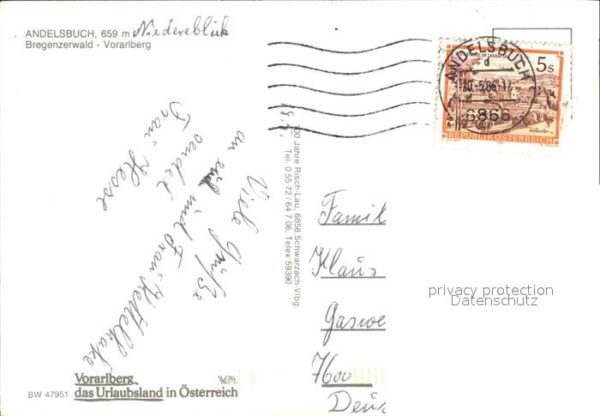 ANDELSBUCH, 659 m Niedereblick
Bregenzerwald - Vorarlberg
Viele Grüße
an
sendet und Frau Kettelhake
Frau Hesse
100 Jahre Risch-Lau, 6858 Schwarzach-Vlbg.
Tel. 0 55 72 / 64 7 06, Telex 59390
Vorarlberg
das Urlaubsland in Österreich
BW 47951
5s
REPUBLIK ÖSTERREICH
ANDELSBUCH
d
6866
Famil
Klaus
Gaswe
7600
Deu
privacy protection
Datenschutz